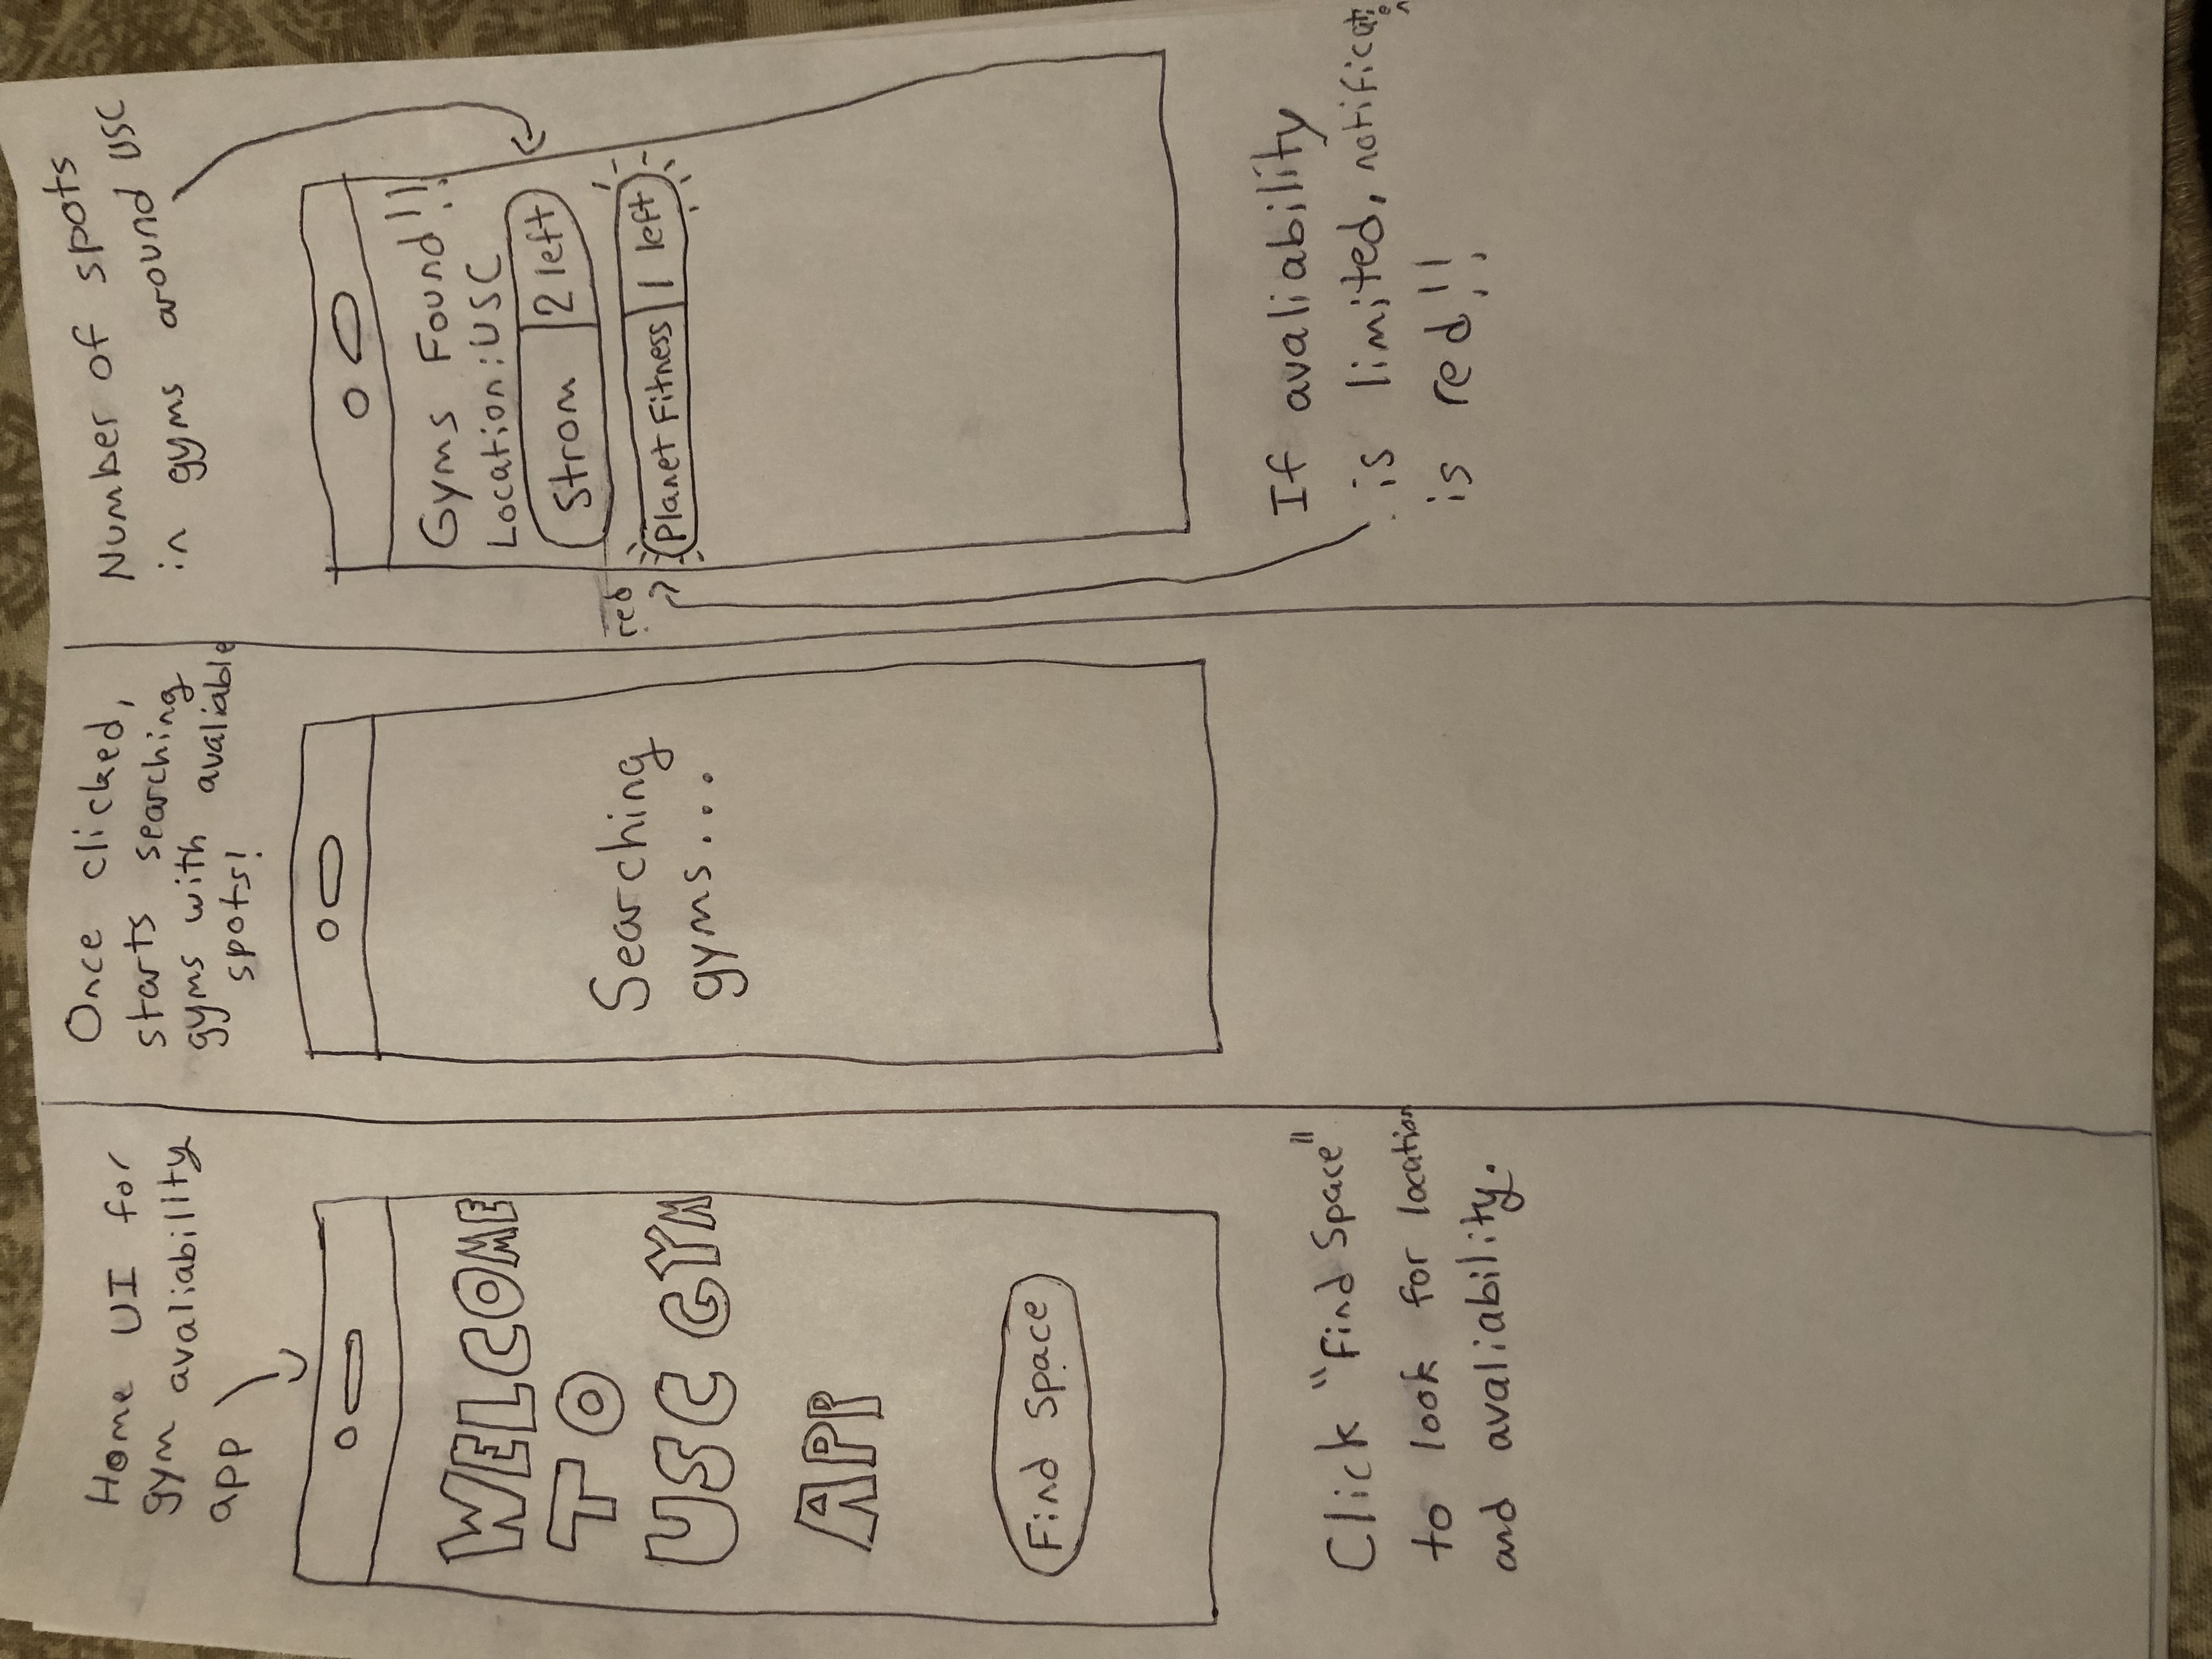 Home UI for
gym avaliability
app
WELCOME
TO
USC GYM
APP
Find Space
Click "Find Space"
to look for location
and avaliability.
Once clicked,
starts searching
gyms with avaliable
spots!
Searching
gyms...
Number of spots
in gyms around USC
Gyms Found!!
Location: USC
Strom 2 left
red
Planet Fitness 1 left
If avaliability
is limited, notification
is red!!